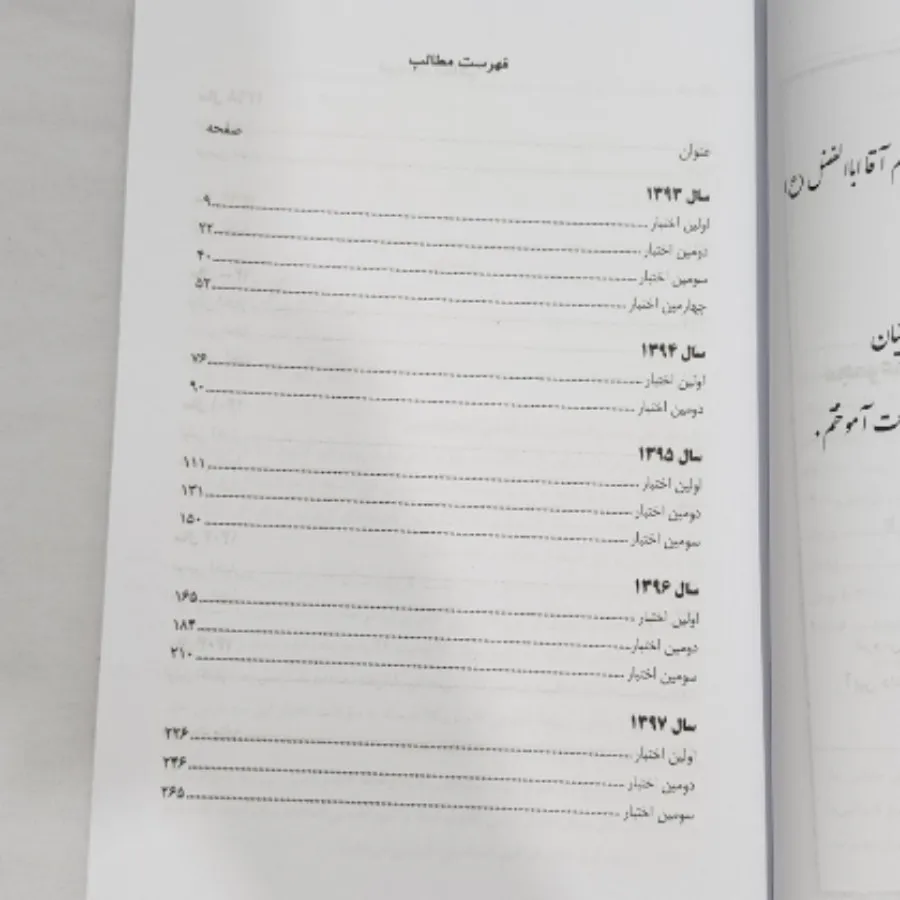 فهرست مطالب
عنوان صفحه
سال ۱۳۹۳
اولین اختبار ۹
دومین اختبار ۲۲
سومین اختبار ۴۰
چهارمین اختبار ۵۲
سال ۱۳۹۴
اولین اختبار ۷۶
دومین اختبار ۹۰
سال ۱۳۹۵
اولین اختبار ۱۱۱
دومین اختبار ۱۳۱
سومین اختبار ۱۵۰
سال ۱۳۹۶
اولین اختبار ۱۶۵
دومین اختبار ۱۸۴
سومین اختبار ۲۱۰
سال ۱۳۹۷
اولین اختبار ۲۲۶
دومین اختبار ۲۴۶
سومین اختبار ۲۶۵
آقا اباالفضل (ع)
آموختم.